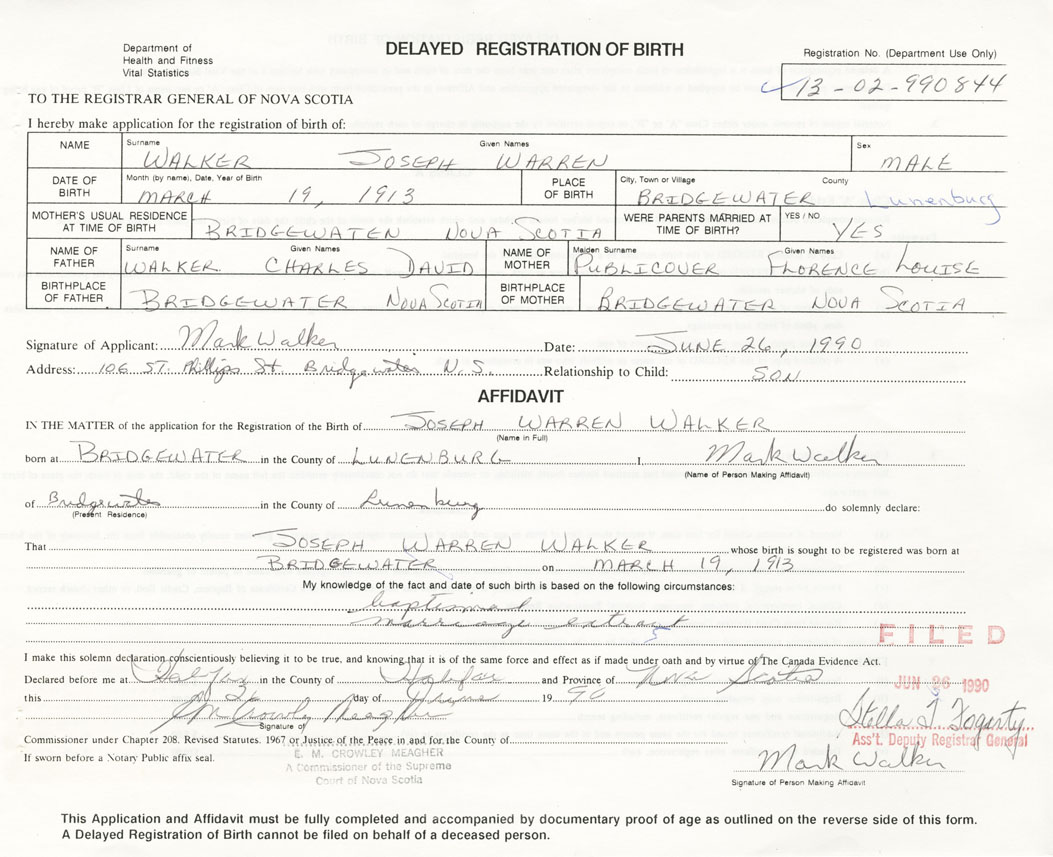 Department of
Health and Fitness
Vital Statistics
DELAYED REGISTRATION OF BIRTH
Registration No. (Department Use Only)
13-02-990844
TO THE REGISTRAR GENERAL OF NOVA SCOTIA
I hereby make application for the registration of birth of:
NAME Surname Given Names Sex
WALKER JOSEPH WARREN MALE
DATE OF BIRTH Month (by name), Date, Year of Birth PLACE OF BIRTH City, Town or Village County
MARCH 19, 1913 BRIDGEWATER Lunenburg
MOTHER'S USUAL RESIDENCE AT TIME OF BIRTH BRIDGEWATER NOVA SCOTIA WERE PARENTS MARRIED AT TIME OF BIRTH? YES / NO YES
NAME OF FATHER Surname Given Names NAME OF MOTHER Maiden Surname Given Names
WALKER CHARLES DAVID PUBLICOVER FLORENCE LOUISE
BIRTHPLACE OF FATHER BRIDGEWATER NOVA SCOTIA BIRTHPLACE OF MOTHER BRIDGEWATER NOVA SCOTIA
Signature of Applicant: Mark Walker Date: JUNE 26, 1990
Address: 106 ST. Phillips St. Bridgewater N.S. Relationship to Child: SON
AFFIDAVIT
IN THE MATTER of the application for the Registration of the Birth of JOSEPH WARREN WALKER
(Name in Full)
born at BRIDGEWATER in the County of LUNENBURG I, Mark Walker
(Name of Person Making Affidavit)
of Bridgewater in the County of Lunenburg do solemnly declare:
(Present Residence)
That JOSEPH WARREN WALKER whose birth is sought to be registered was born at
BRIDGEWATER on MARCH 19, 1913
My knowledge of the fact and date of such birth is based on the following circumstances:
baptismal
marriage extract
FILED
I make this solemn declaration conscientiously believing it to be true, and knowing that it is of the same force and effect as if made under oath and by virtue of The Canada Evidence Act.
Declared before me at Halifax in the County of Halifax and Province of Nova Scotia
JUN 26 1990
this 26 day of June 19 90
E M Crowley Meagher
Signature of
Stella T. Fogarty
Ass't. Deputy Registrar General
Commissioner under Chapter 208. Revised Statutes. 1967 or Justice of the Peace in and for the County of
E. M. CROWLEY MEAGHER
A Commissioner of the Supreme
Court of Nova Scotia
If sworn before a Notary Public affix seal.
Mark Walker
Signature of Person Making Affidavit
This Application and Affidavit must be fully completed and accompanied by documentary proof of age as outlined on the reverse side of this form.
A Delayed Registration of Birth cannot be filed on behalf of a deceased person.